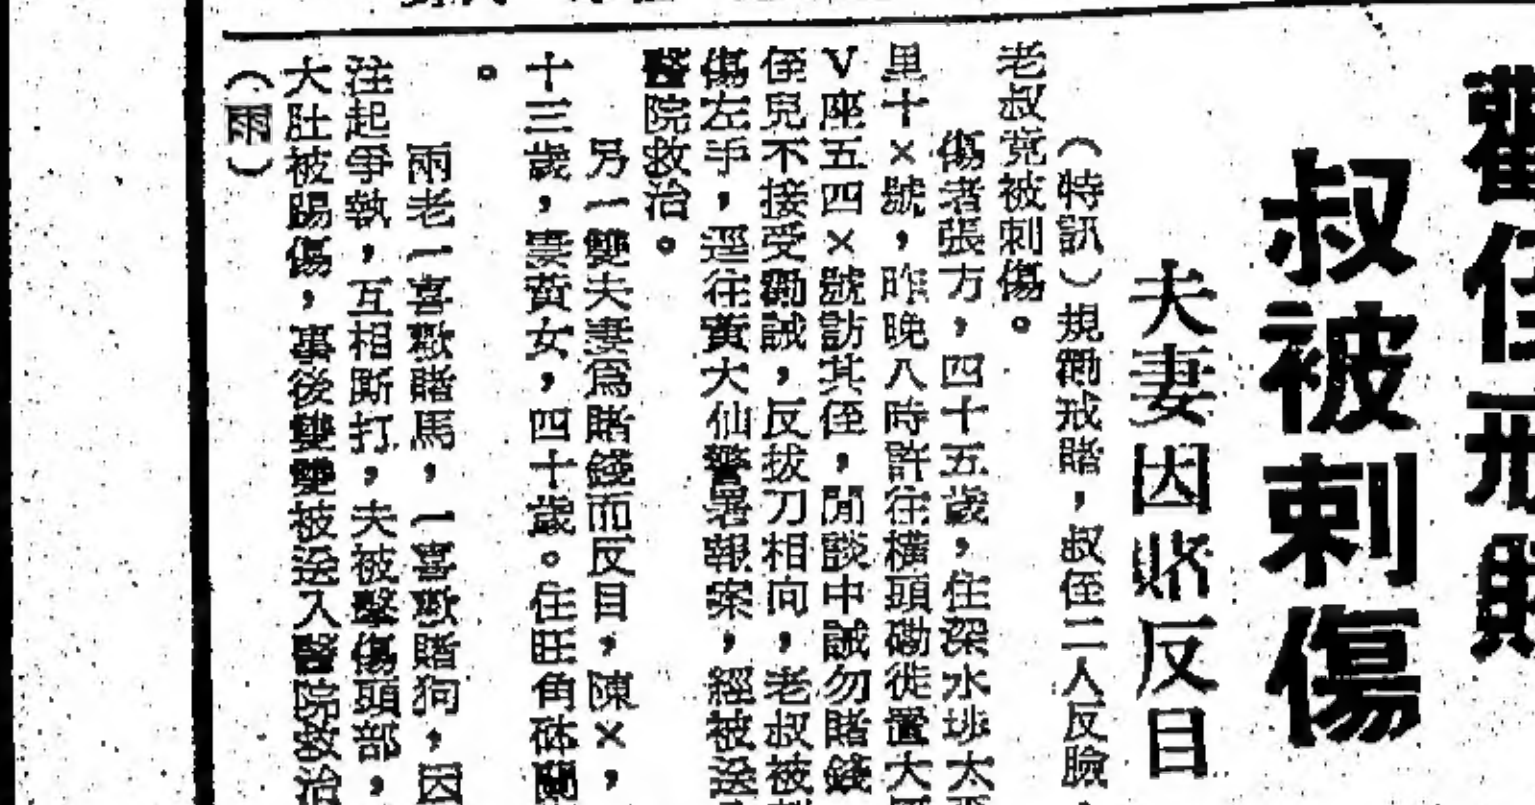 勸侄戒賭
叔被刺傷
夫妻因賭反目
（特訊）規勸戒賭，叔侄二人反臉，
老叔竟被刺傷。
傷者張方，四十五歲，住深水埗太
里十×號，昨晚八時許往橫頭磡徙置大
V座五四×號訪其侄，閒談中誡勿賭錢
侄兒不接受勸誡，反拔刀相向，老叔被
傷左手，逕往黃大仙警署報案，經被送
醫院救治。
另一雙夫妻爲賭錢而反目，陳×，
十三歲，妻黃女，四十歲。住旺角砵蘭
。
兩老一喜歡賭馬，一喜歡賭狗，因
注起爭執，互相厮打，夫被擊傷頭部，
大肚被踢傷，事後雙雙被送入醫院救治
（雨）